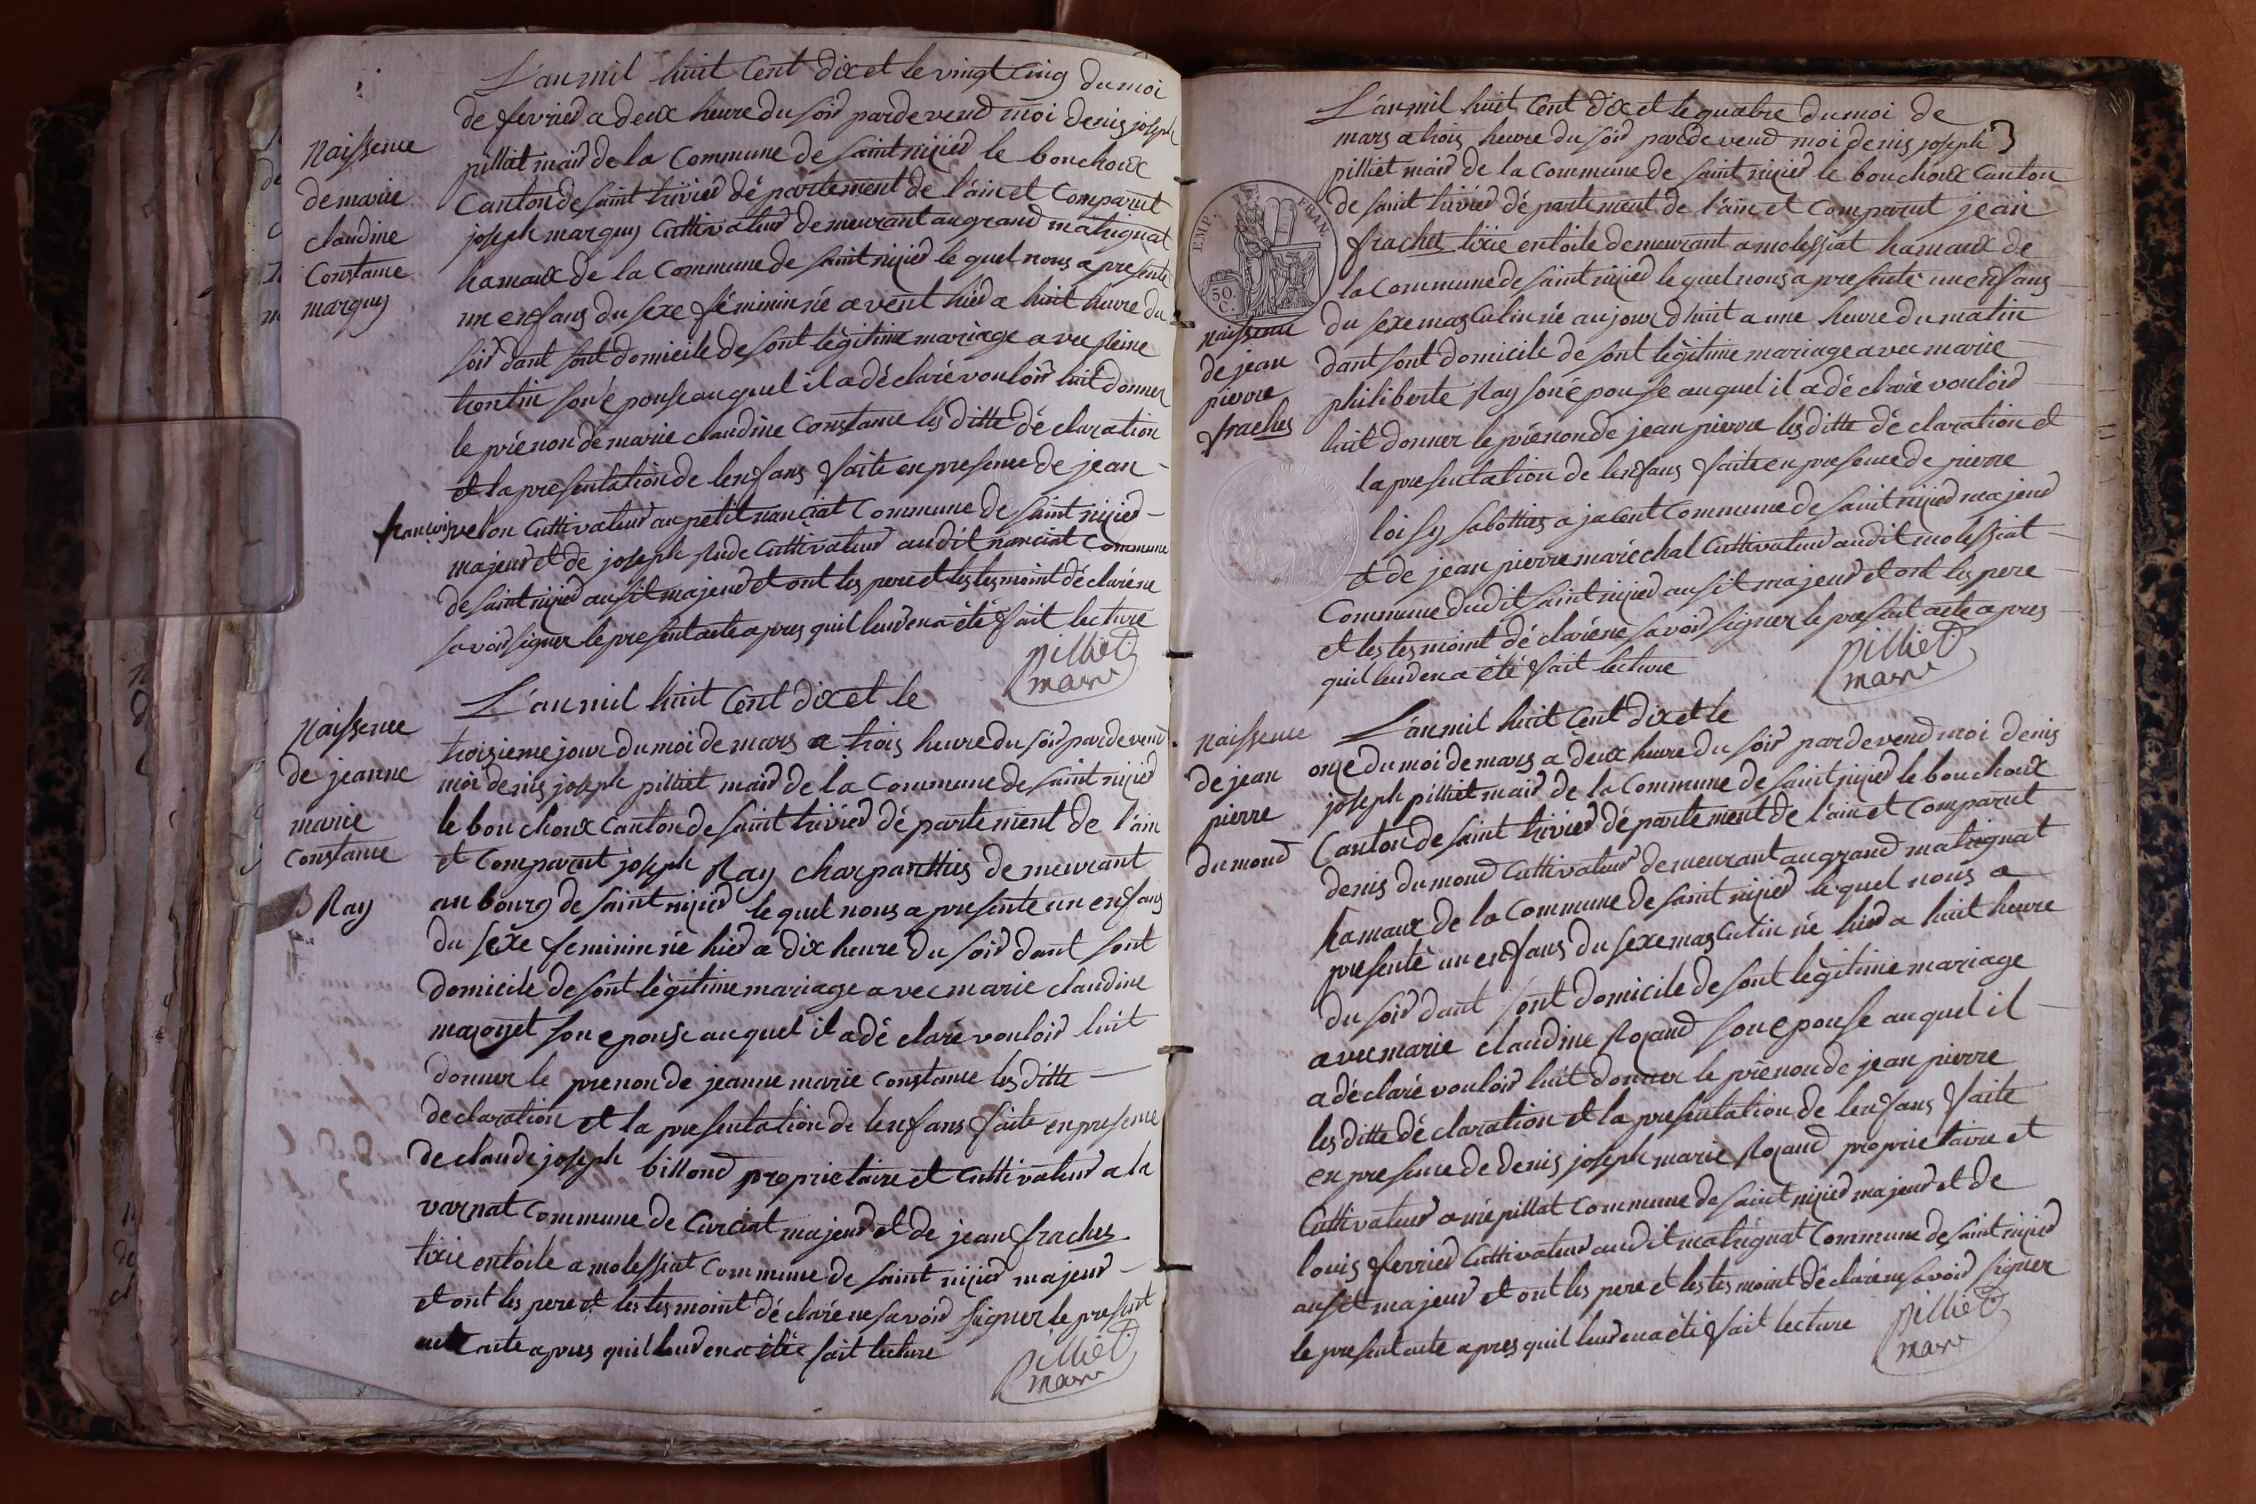 L'an mil huit Cent dix et le vingt Cinq du moi
de fevrier a deux heure du soir pardevend moi denis joseph
pilliet mair de la Commune de saint nizier le bouchoux
Canton de saint trivier département de l'ain et Comparut
joseph marguy Cuttivateur demeurant au grand matrignat
hamaux de la Commune de saint nizier le quel nous a presenté
un enfans du sexe féminin né avent hier a huit heure du
soir dant sont domicile de sont lègitime mariage avec
trontin son épouse auquel il a déclaré vouloir luit donner
le prénon de marie claudine Constance les ditte déclaration
et la presentation de lenfans faite en presence de jean
françois velon Cuttivateur au petit nanciat Commune de saint nizier
majeur et de joseph rude Cuttivateur audit nanciat Commune
de saint nizier ausit majeur et ont les pere et les tesmoint déclaré ne
savoir signer le present acte apres quil leur en a été fait lecture
pilliet
mair
Naissence
de marie
claudine
Constance
marguy
L'an mil huit Cent dix et le
troisieme jour du moi de mars a trois heure du soir pardevend
moi denis joseph pilliet mair de la Commune de saint nizier
le bouchoux canton de saint trivier département de l'ain
et Comparut joseph Ray charpantties demeurant
au bourg de saint nizier le quel nous a presenté un enfans
du sexe feminin né hier a dix heure du soir dant sont
domicile de sont lègitime mariage avec marie claudine
mazonjet son epouse auquel il a déclaré vouloir luit
donner le prenon de jeanne marie constance les ditte
declaration et la presentation de lenfans faite en presence
de claude joseph billond proprietaire et Cuttivateur a la
varnat Commune de Curciat majeur et de jean fraches
tixie en toile a molessiat Commune de saint nizier majeur
et ont les pere et les tesmoint déclaré ne savoir signer le present
acte apres quil leur en a été fait lecture
pilliet
mair
Naissence
de jeanne
marie
constance
Ray
3
L'an mil huit Cent dix et le quatre du moi de
mars a trois heure du soir pardevend moi denis joseph
pilliet mair de la Commune de saint nizier le bouchoux Canton
de saint trivier département de l'ain et Comparut jean
fraches tixie en toile demeurant a molessiat hamaux de
la Commune de saint nizier le quel nous a presenté un enfans
du sexe masculin né aujourdhuit a une heure du matin
dant sont domicile de sont lègitime mariage avec marie
philiberte Ray son épouse auquel il a déclaré vouloir
luit donner le prénon de jean pierre les ditte déclaration et
la presentation de lenfans faite en presence de pierre
loisy sabotties a jacent Commune de saint nizier majeur
et de jean pierre maréchal Cuttivateur audit molessiat
Commune dudit saint nizier ausit majeur et ont les pere
et les tesmoint déclaré ne savoir signer le present acte apres
quil leur en a été fait lecture
pilliet
mair
EMP. FRAN.
50.
C.
naissence
de jean
pierre
fraches
L'an mil huit Cent dix et le
onze du moi de mars a deux heure du soir pardevend moi denis
joseph pilliet mair de la Commune de saint nizier le bouchoux
Canton de saint trivier département de l'ain et Comparut
denis dumond Cuttivateur demeurant au grand matrignat
hamaux de la Commune de saint nizier le quel nous a
presenté un enfans du sexe masculin né hier a huit heure
du soir dant sont domicile de sont lègitime mariage
avec marie claudine Rozand son epouse auquel il
a déclaré vouloir luit donner le prénon de jean pierre
les ditte déclaration et la presentation de lenfans faite
en presence de denis joseph marie Rozand proprietaire et
Cuttivateur a mépillat Commune de saint nizier majeur et de
louis ferrier Cuttivateur audit matrignat Commune de saint nizier
ausit majeur et ont les pere et les tesmoint déclaré ne savoir signer
le present acte apres quil leur en a été fait lecture
pilliet
mair
Naissence
de jean
pierre
dumond